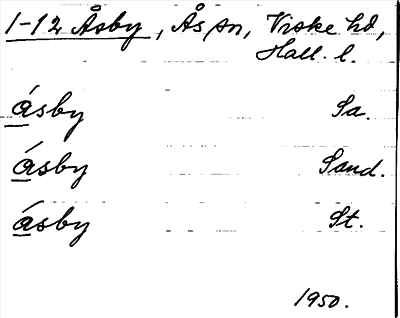 1-12 Åsby, Ås sn, Viske hd,
Hall. l.
ásby Sa.
ásby Sand.
ásby St.
1950.